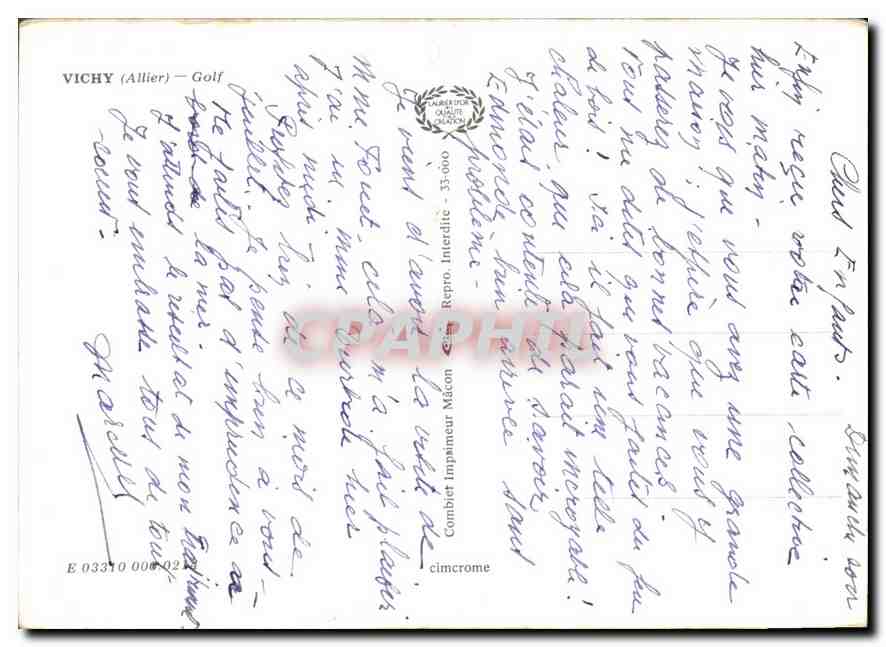 VICHY (Allier) — Golf
LAURIER D'OR
DE
QUALITÉ
CRÉATION
Combier Imprimeur Mâcon Repro. Interdite - 33-000
E 03310 000 021
cimcrome
CPAPHIL
Dimanche soir
Chers Enfants.
Enfin reçu votre carte collective
hier matin -
Je vois que vous avez une grande
maison j'espère que vous y
passerez de bonnes vacances.
Vous me dites que vous faites du feu
de bois! Ici il fait une telle
chaleur que cela parait incroyable!
J'étais contente de savoir
Edmonde bien arrivée sans
problème -
Je viens d'avoir la visite de
Mme Touet. cela m'a fait plaisir.
J'ai vu mme hier
après midi -
Profitez bien de ce mois de
juillet - Je pense bien à vous -
Ne faites pas d'imprudence à
la mer -
J'attends le résultat de mon
Je vous embrasse tous de tout
coeur -
Marcel